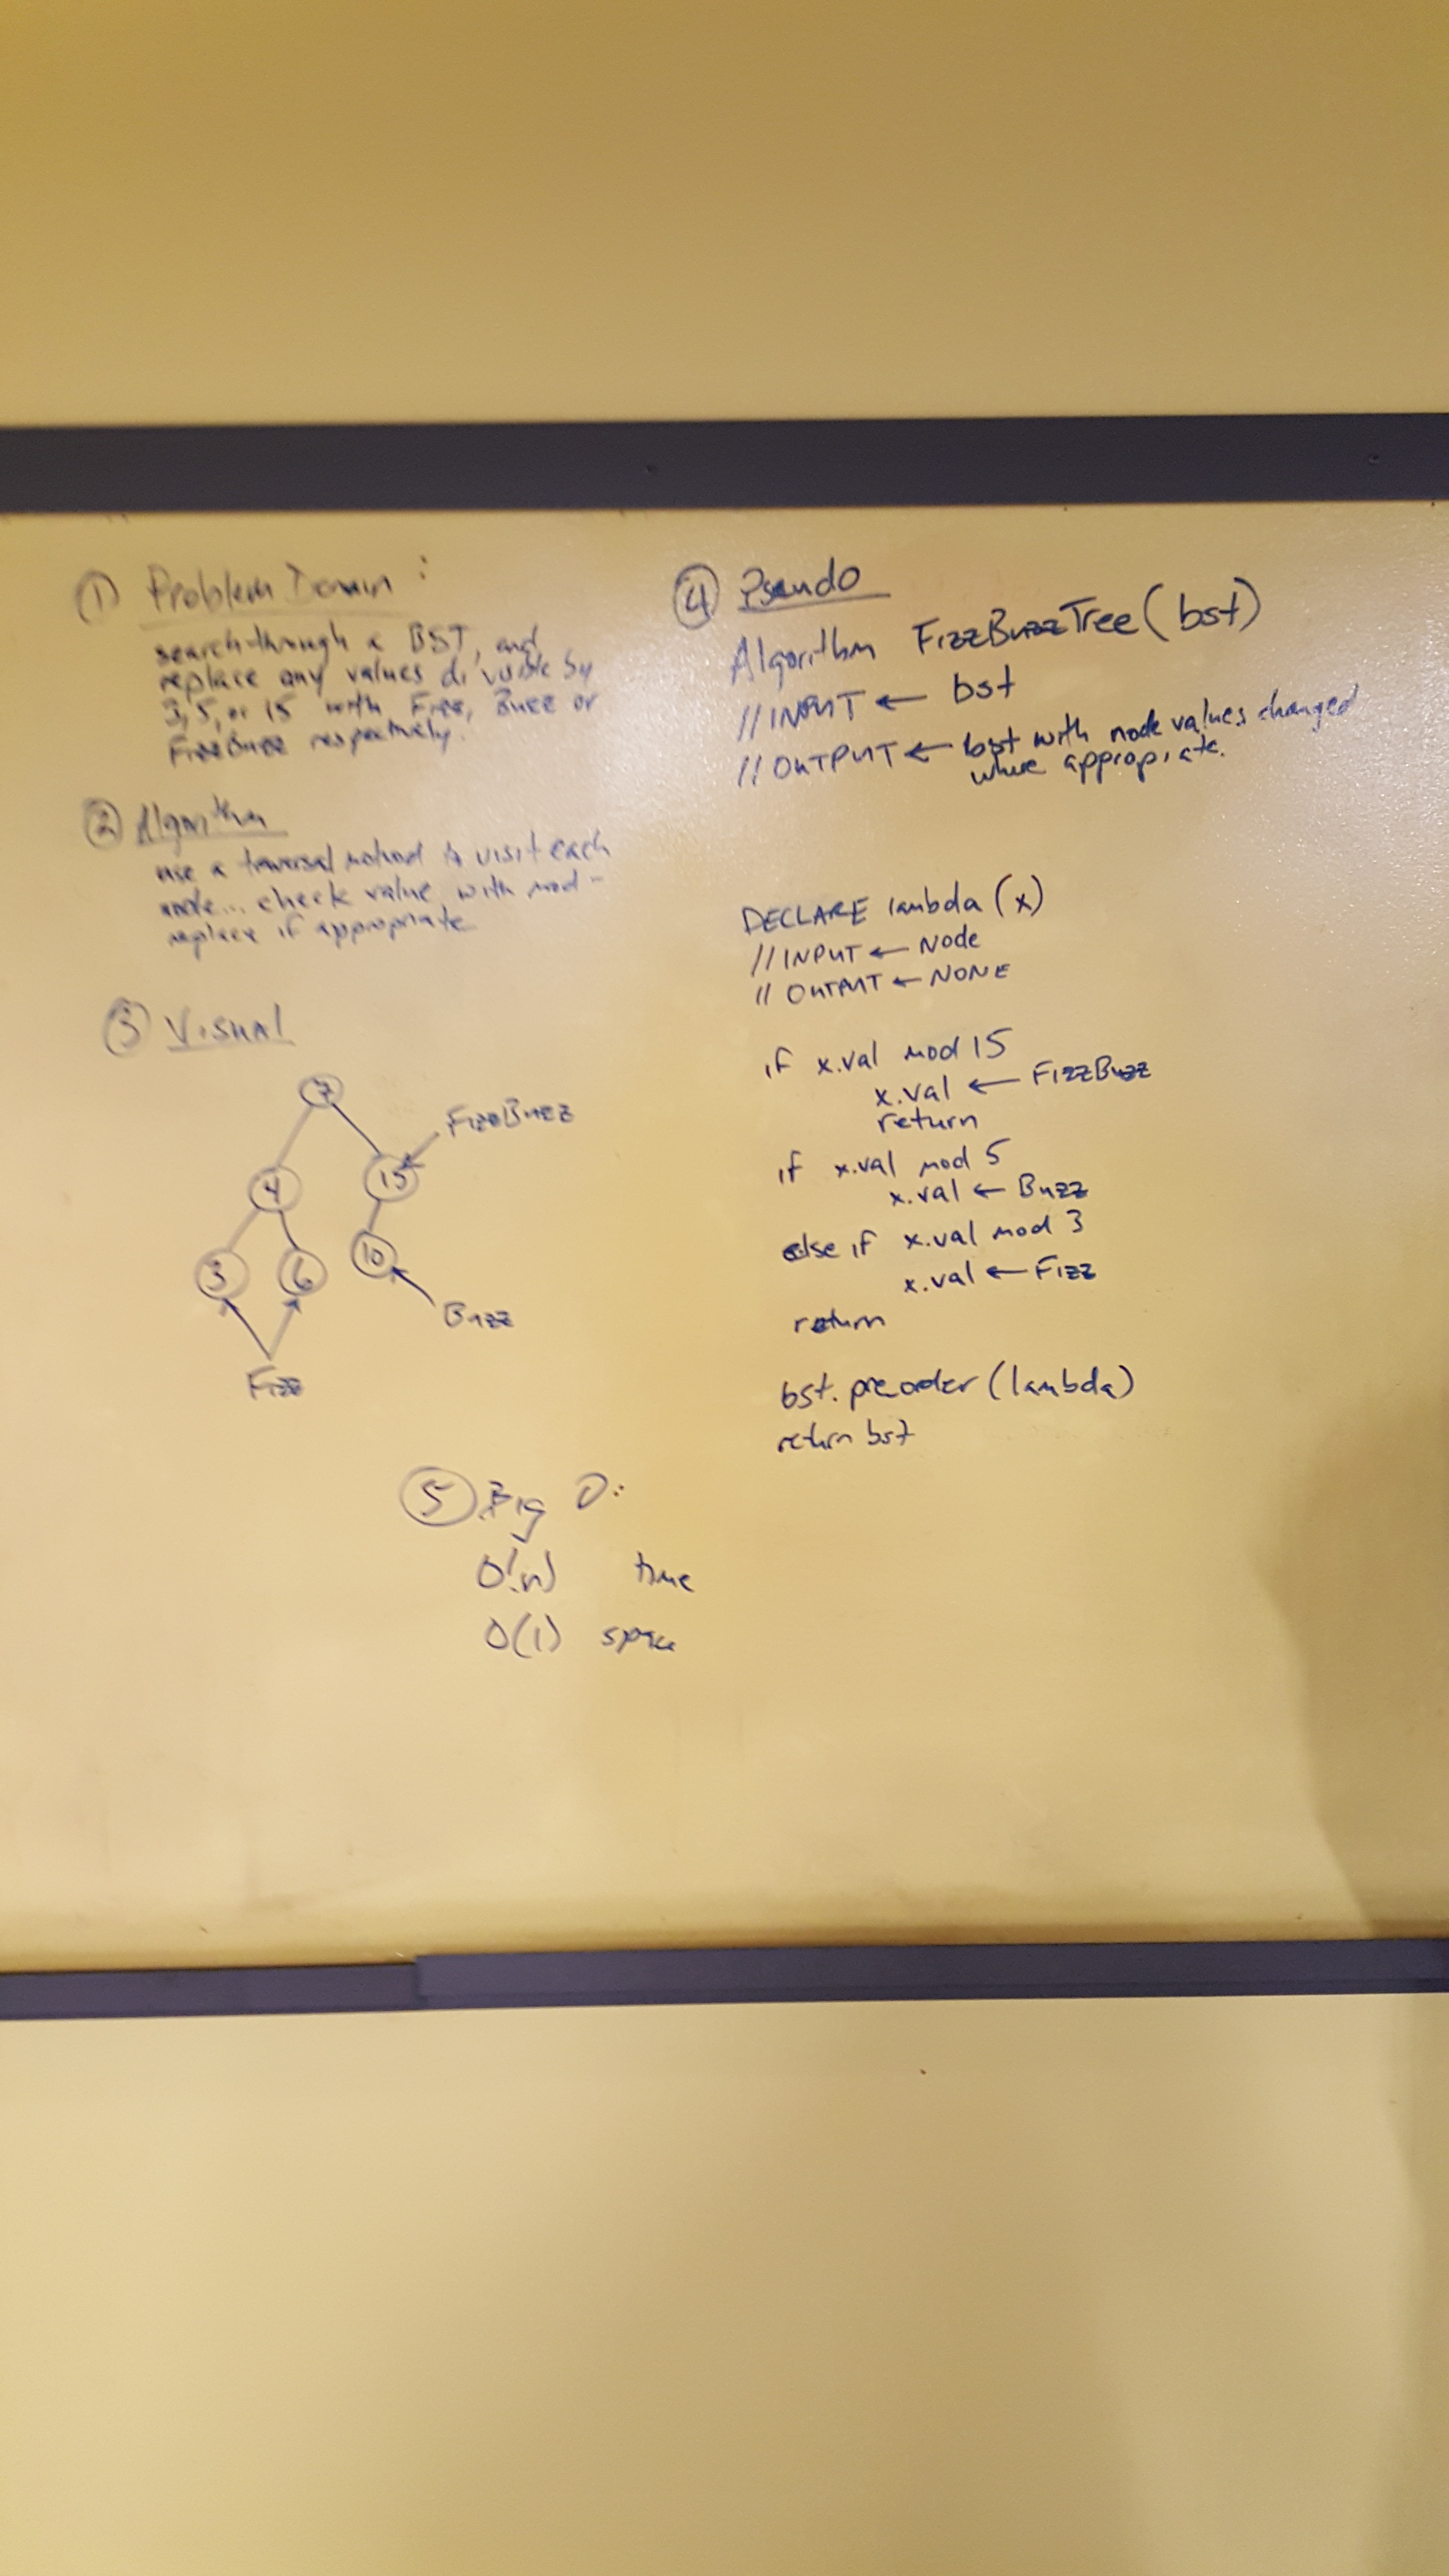 ① Problem Domain:
search through a BST, and
replace any values divisible by
3, 5, or 15 with Fizz, Buzz or
FizzBuzz respectively.
② Algorithm
use a traversal method to visit each
node... check value with mod -
replace if appropriate
③ Visual
7
FizzBuzz
4 15
3 6 10
Buzz
Fizz
④ Pseudo
Algorithm FizzBuzzTree(bst)
// INPUT ← bst
// OUTPUT ← bst with node values changed
where appropriate.
DECLARE lambda (x)
// INPUT ← Node
// OUTPUT ← NONE
if x.val mod 15
x.val ← FizzBuzz
return
if x.val mod 5
x.val ← Buzz
else if x.val mod 3
x.val ← Fizz
return
bst.preorder(lambda)
return bst
⑤ Big O:
O(n) time
O(1) space